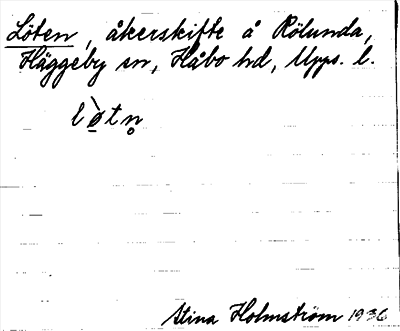 Löten, åkerskifte å Rölunda,
Häggeby sn, Håbo hd, Upps. l.
lø̀tn̥
Stina Holmström 1936